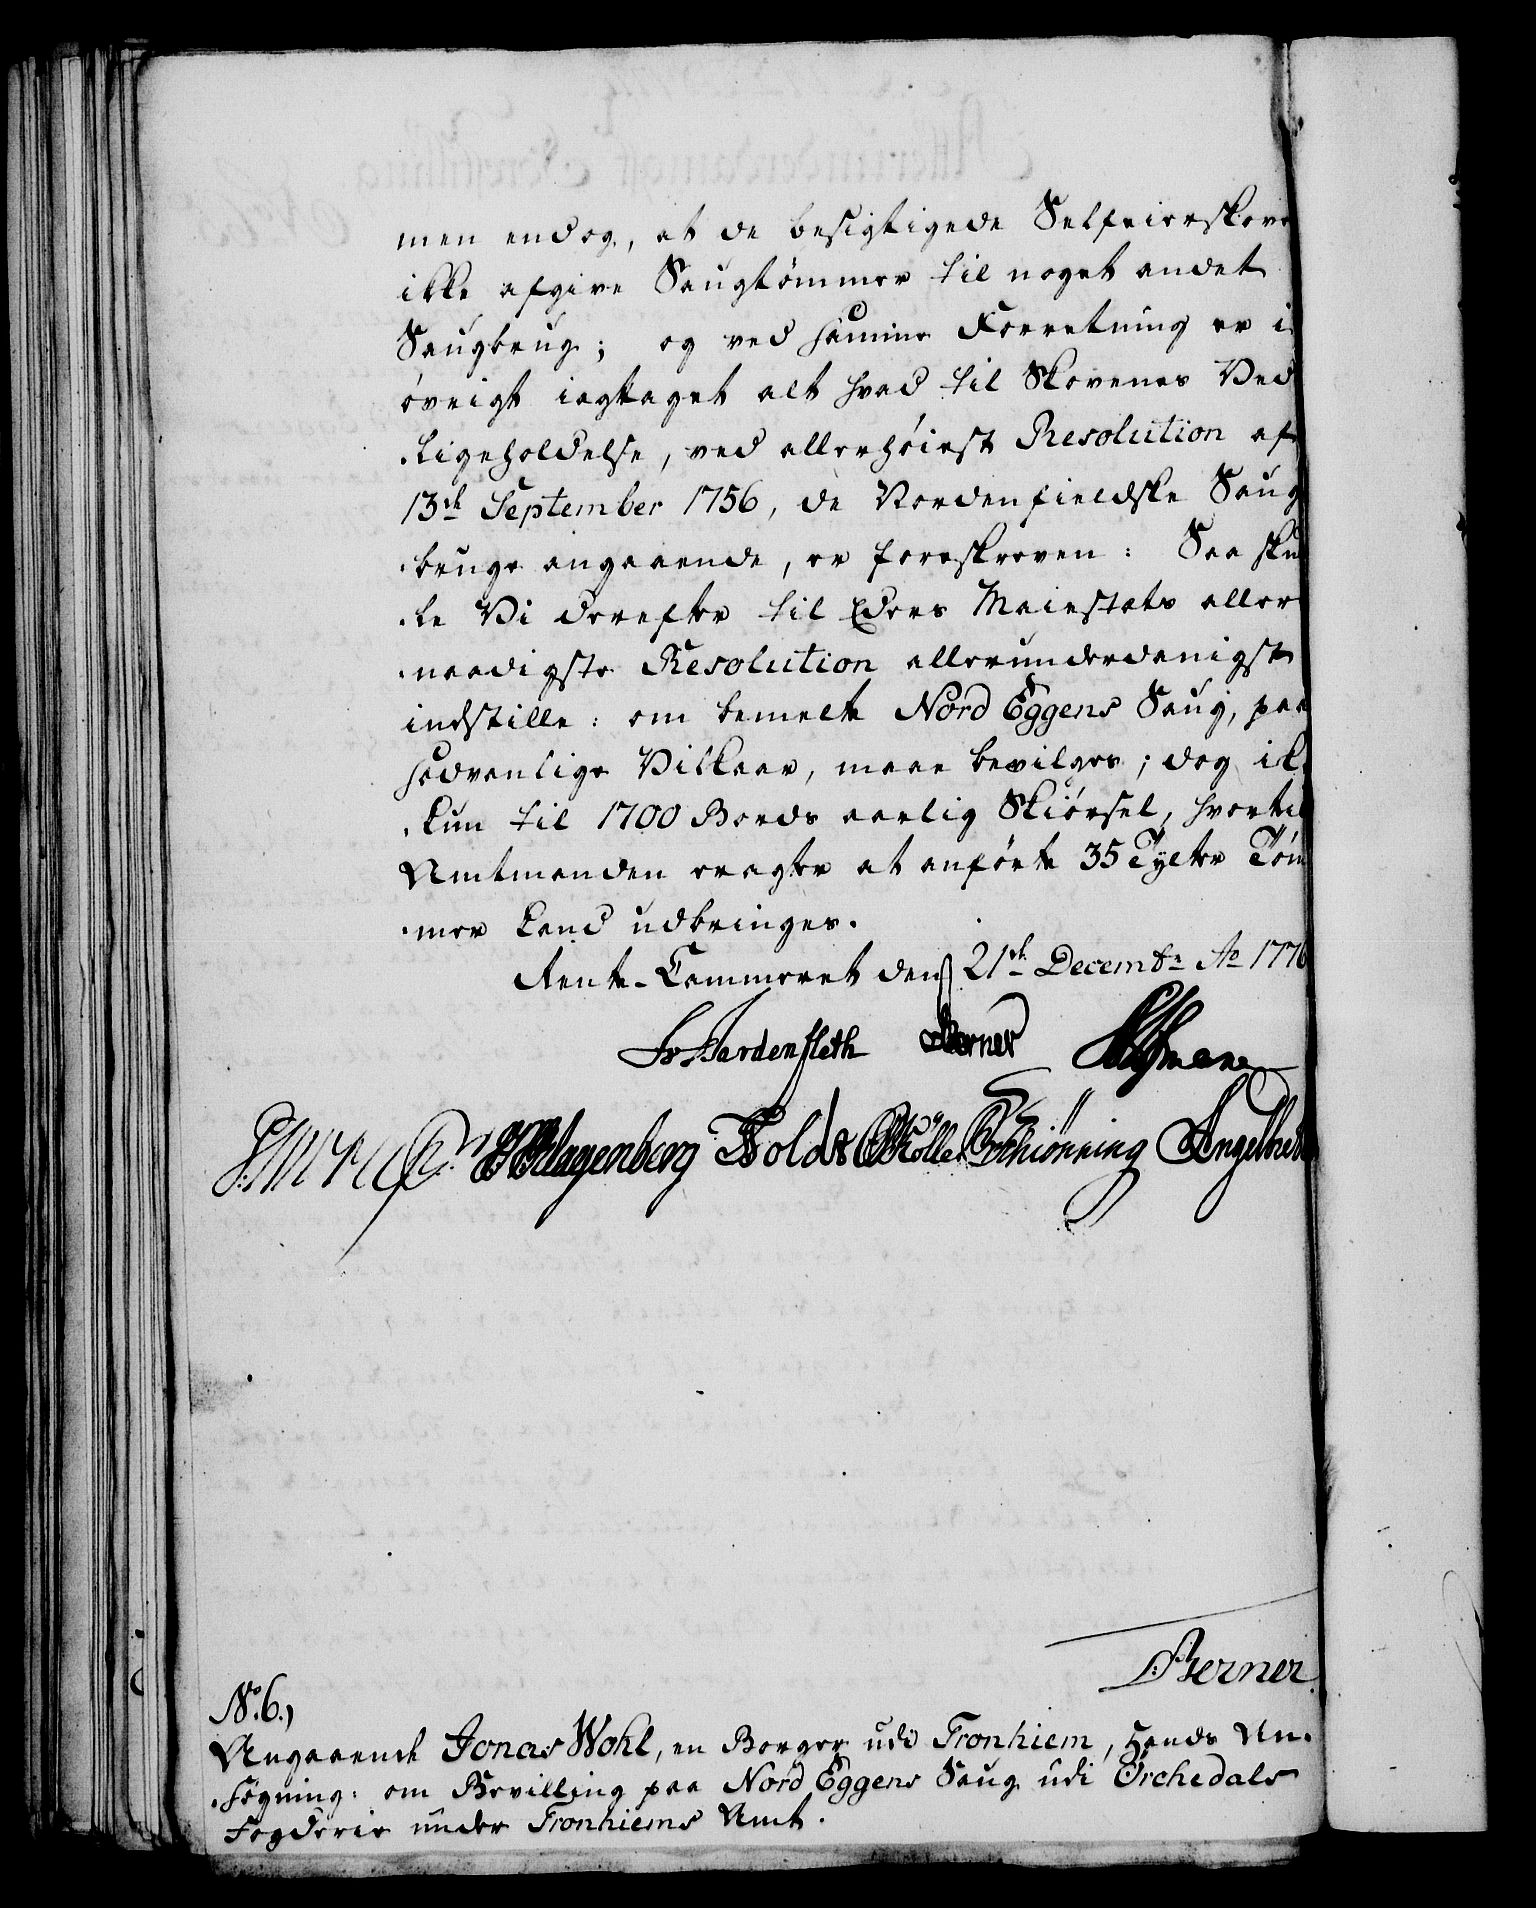 men endog, at de besigtigede Selfeierskove
ikke afgive Saugtømmer til noget andet
Saugbrug; og ved samme Forretning er i
øvrigt iagttaget alt hvad til Skovenes Ved
ligeholdelse, ved allerhøiest Resolution af
13de September 1756, de Nordenfieldske Saug
bruge angaaende, er foreskreven: Saa skul
le Vi derefter til Eders Maiestæts aller
naadigste Resolution allerunderdanigst
indstille: om bemelte Nord Eggens Saug, paa
sædvanlige Vilkaar, maae bevilges; dog ik
kun til 1700 Bords aarlig Skiørsel, hvortil
Amtmanden eragter at anførte 35 Tylter Tøm
mer kand udbringes.
Rente-Cammeret den 21de Decembr Ao 1776
Fr Hardenfleth Berner
Klagenberg Bolds Müller Schiønning Engelbreth
Berner
No. 6.)
Angaaende Jonas Wohl, en Borger udi Tronhiem, Hands An-
søgning: om Bevilling paa Nord Eggens Saug udi Orchedals
Fogderie under Tronhiems Amt.